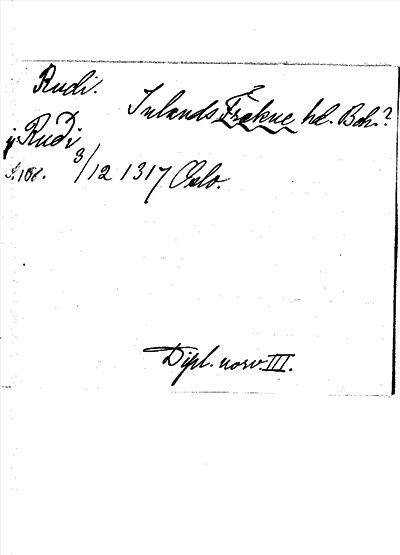 Rudi.
Inlands Fräkne hd. Boh.?
j Rudi
s. 108. 3/12 1317 Oslo.
Dipl. norv. III.